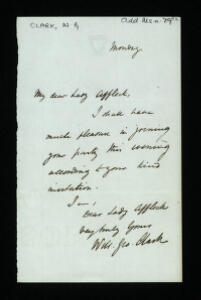 CLARK, W G
Add Ms.
Monday
My dear Lady Affleck,
I shall have
much pleasure in joining
your party this evening
according to your kind
invitation.
I am,
Dear Lady Affleck
very truly yours
Will. Geo. Clark